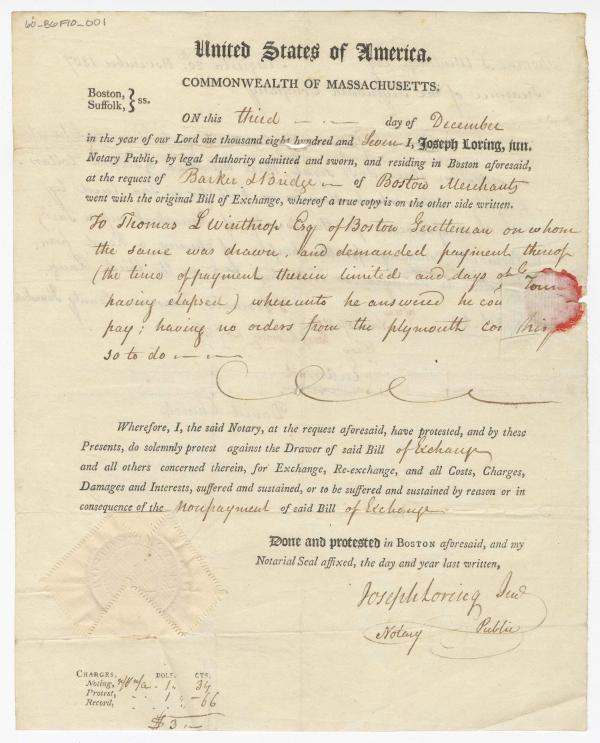 United States of America.
COMMONWEALTH OF MASSACHUSETTS.
Boston,
Suffolk, } ss.
ON this third day of December
in the year of our Lord one thousand eight hundred and Seven I, Joseph Loring, jun.
Notary Public, by legal Authority admitted and sworn, and residing in Boston aforesaid,
at the request of Barker & Bridge of Boston Merchants
went with the original Bill of Exchange, whereof a true copy is on the other side written.
To Thomas L Winthrop Esq of Boston Gentleman on whom
the same was drawn, and demanded payment thereof
(the time of payment therein limited and days of
having elapsed) whereunto he answered he
pay; having no orders from the plymouth
so to do
Wherefore, I, the said Notary, at the request aforesaid, have protested, and by these
Presents, do solemnly protest against the Drawer of said Bill of Exchange
and all others concerned therein, for Exchange, Re-exchange, and all Costs, Charges,
Damages and Interests, suffered and sustained, or to be suffered and sustained by reason or in
consequence of the Nonpayment of said Bill of Exchange
Done and protested in BOSTON aforesaid, and my
Notarial Seal affixed, the day and year last written,
Joseph Loring Jun
Notary Public
CHARGES. DOLS. CTS.
Noting, 1 34
Protest,
Record, 1 66
$3